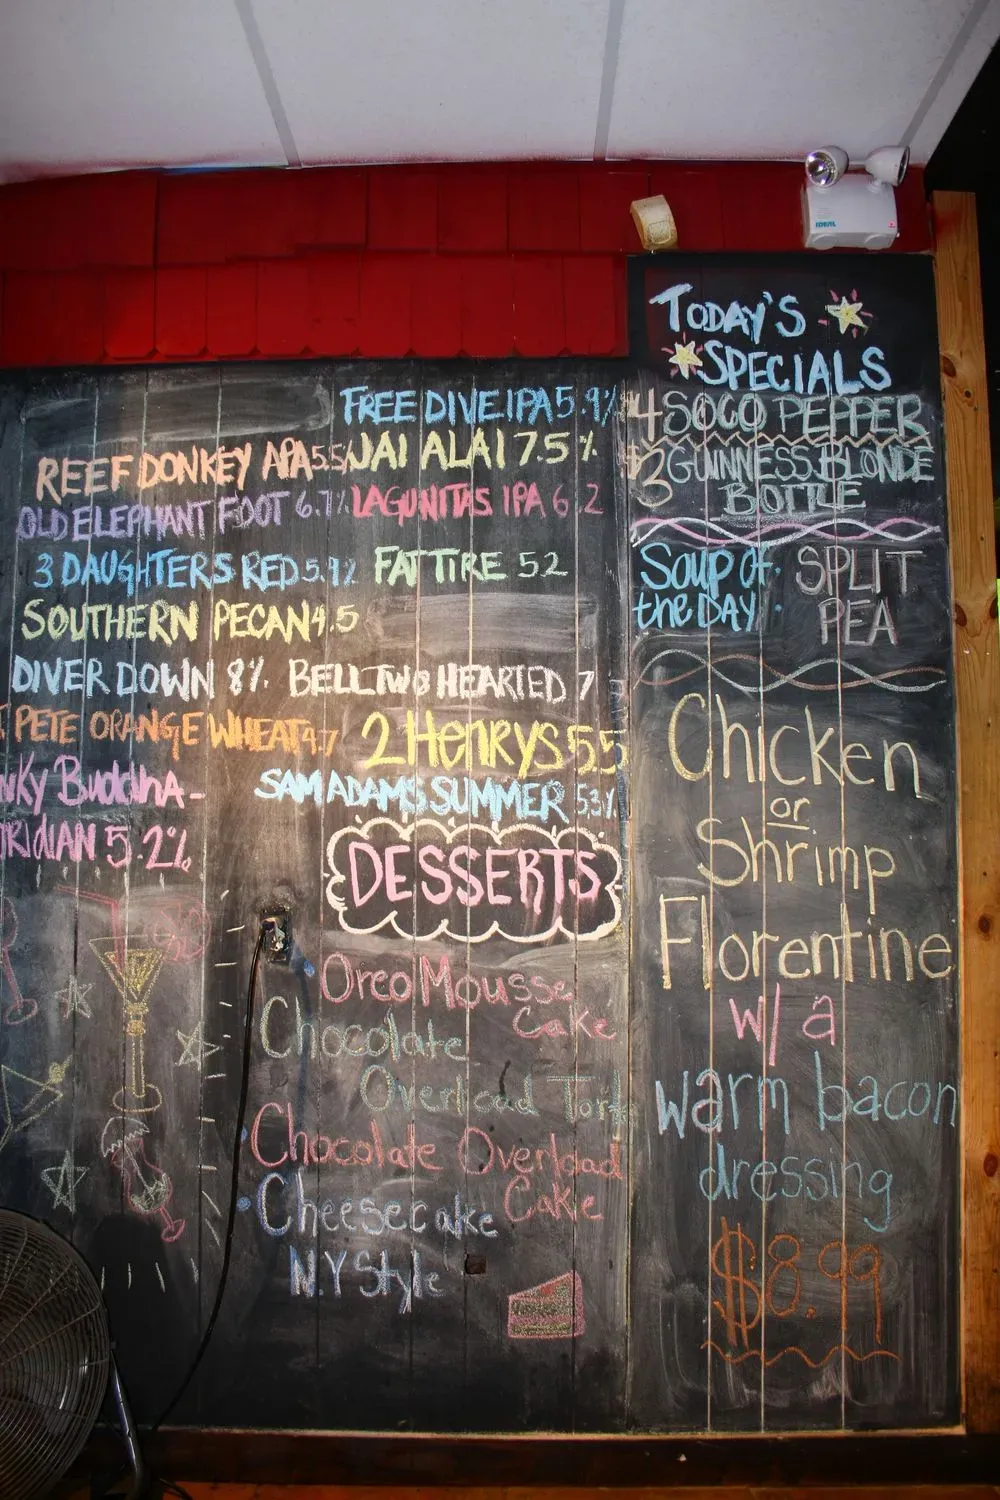 REEF DONKEY APA 5.5
OLD ELEPHANT FOOT 6.7%
3 DAUGHTERS RED 5.9%
SOUTHERN PECAN 4.5
DIVER DOWN 8%
PETE ORANGE WHEAT 4.7
NKY BUDDHA-
RIDIAN 5.2%
FREE DIVE IPA 5.9%
JAI ALAI 7.5%
LAGUNITAS IPA 6.2
FAT TIRE 52
BELL TWO HEARTED 7
2 HENRYS 55
SAM ADAMS SUMMER 5.3%
DESSERTS
Oreo Mousse
Cake
Chocolate
Overload Torte
Chocolate Overload
Cake
Cheesecake
N.Y Style
TODAY'S
SPECIALS
$4 SOCO PEPPER
$3 GUINNESS BLONDE
BOTTLE
SOUP OF
the DAY:
SPLIT
PEA
Chicken
or
Shrimp
Florentine
w/ a
warm bacon
dressing
$8.99
IDEAL